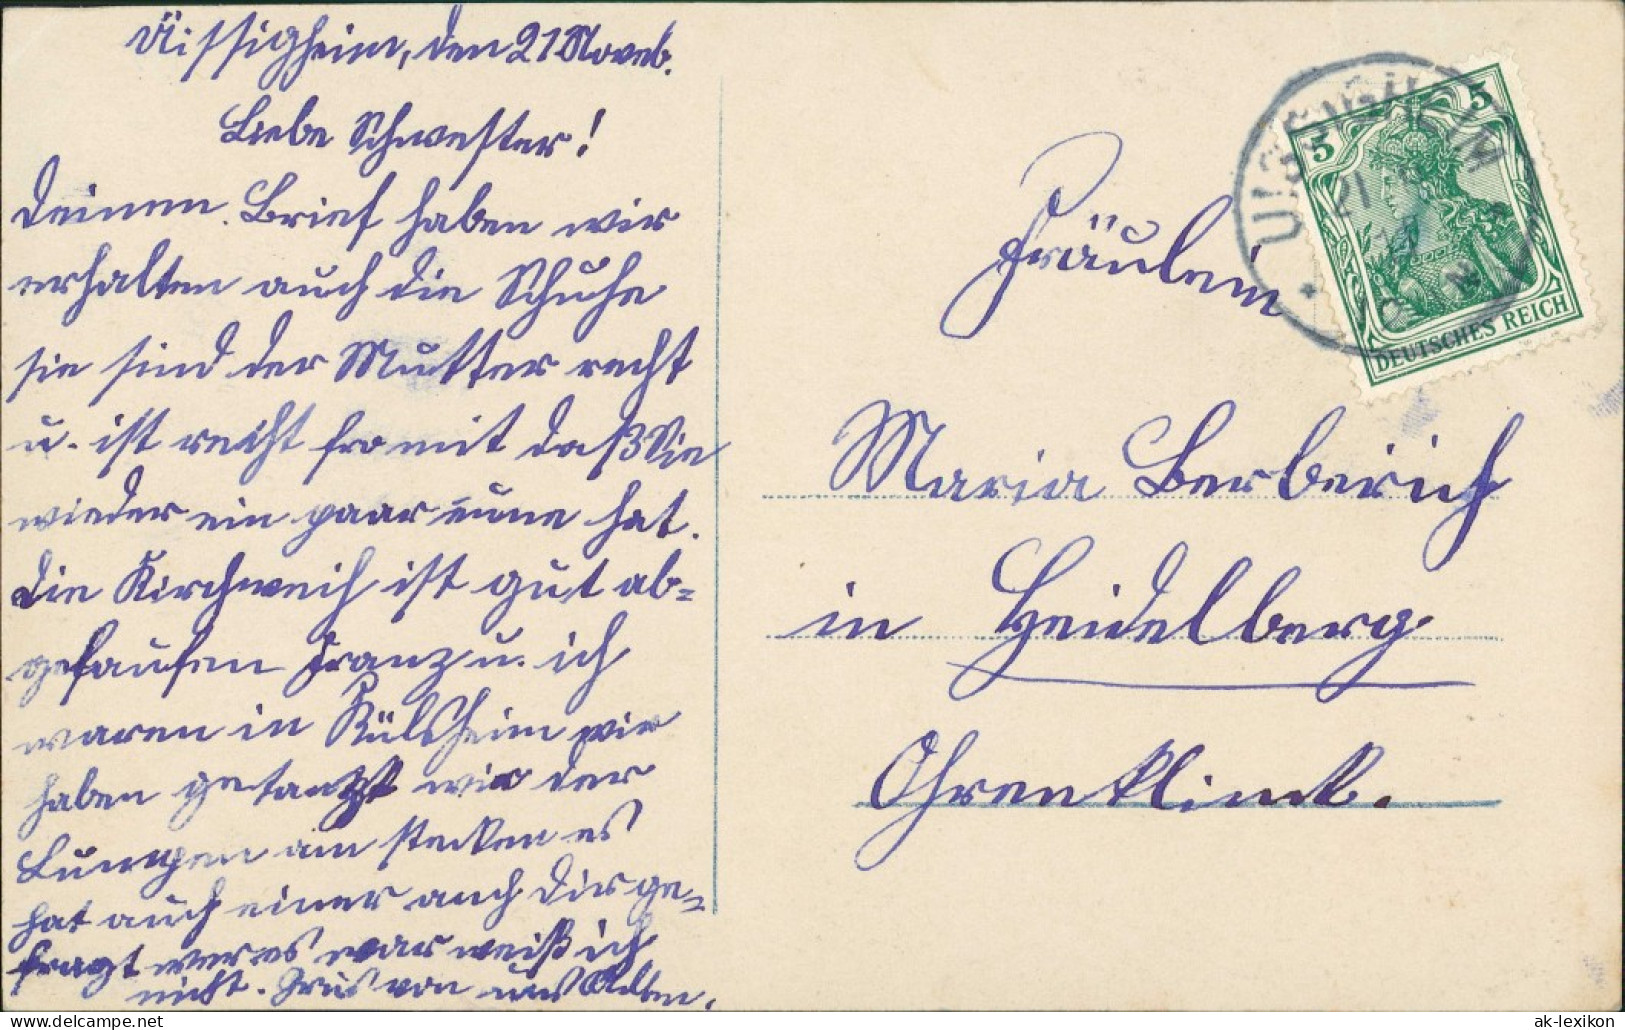 Üissigheim, den 21 Noveb.
Liebe Schwester!
Deinen Brief haben wir
erhalten auch die Schuhe
sie sind der Mutter recht
u. ist recht fro mit daß Sie
wieder ein paar hat.
Die Kirchweih ist gut ab=
gelaufen Franz u. ich
waren in Külsheim wir
haben getanzt wie der
Lumpen am stecken es
hat auch einer nach dir ge=
fragt wer es war weiß ich
nicht. Grus von uns Allen.
Fräulein
Maria Berberich
in Heidelberg
Ohrenklinik.
5 5
DEUTSCHES REICH
21
ak-lexikon
www.delcampe.net